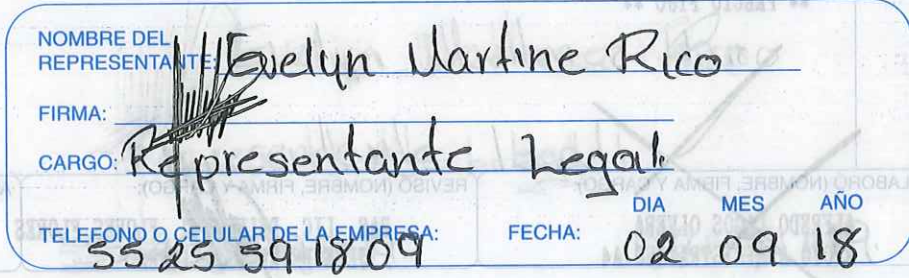 NOMBRE DEL
REPRESENTANTE: Evelyn Martine Rico
FIRMA:
CARGO: Representante Legal.
DIA MES AÑO
TELEFONO O CELULAR DE LA EMPRESA: 55 25 59 18 09 FECHA: 02 09 18